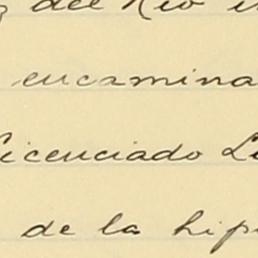 del Rio
encamina
Licenciado
de la